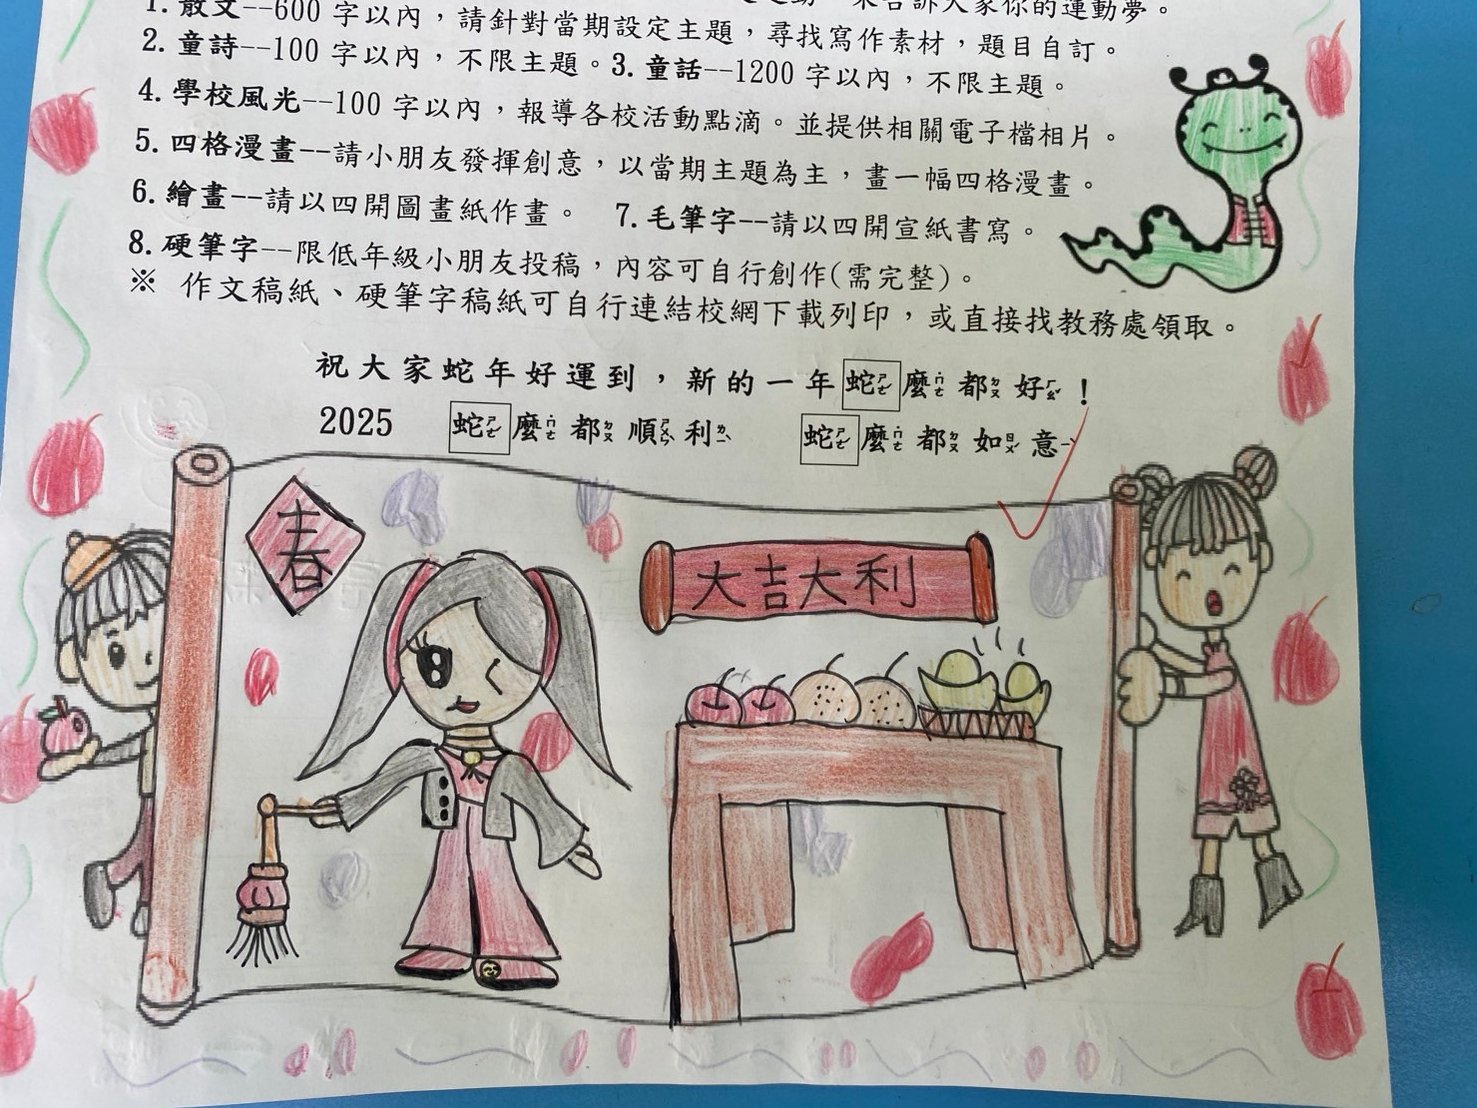 1. 散文--600 字以內，請針對當期設定主題，尋找寫作素材，題目自訂。
2. 童詩--100 字以內，不限主題。3. 童話--1200 字以內，不限主題。
4. 學校風光--100 字以內，報導各校活動點滴。並提供相關電子檔相片。
5. 四格漫畫--請小朋友發揮創意，以當期主題為主，畫一幅四格漫畫。
6. 繪畫--請以四開圖畫紙作畫。 7. 毛筆字--請以四開宣紙書寫。
8. 硬筆字--限低年級小朋友投稿，內容可自行創作(需完整)。
※ 作文稿紙、硬筆字稿紙可自行連結校網下載列印，或直接找教務處領取。
祝大家蛇年好運到，新的一年蛇ㄕㄜˊ麼ㄇㄜ˙都ㄉㄡ好ㄏㄠˇ！
2025 蛇ㄕㄜˊ麼ㄇㄜ˙都ㄉㄡ順ㄕㄨㄣˋ利ㄌㄧˋ 蛇ㄕㄜˊ麼ㄇㄜ˙都ㄉㄡ如ㄖㄨˊ意ㄧˋ
春
大吉大利